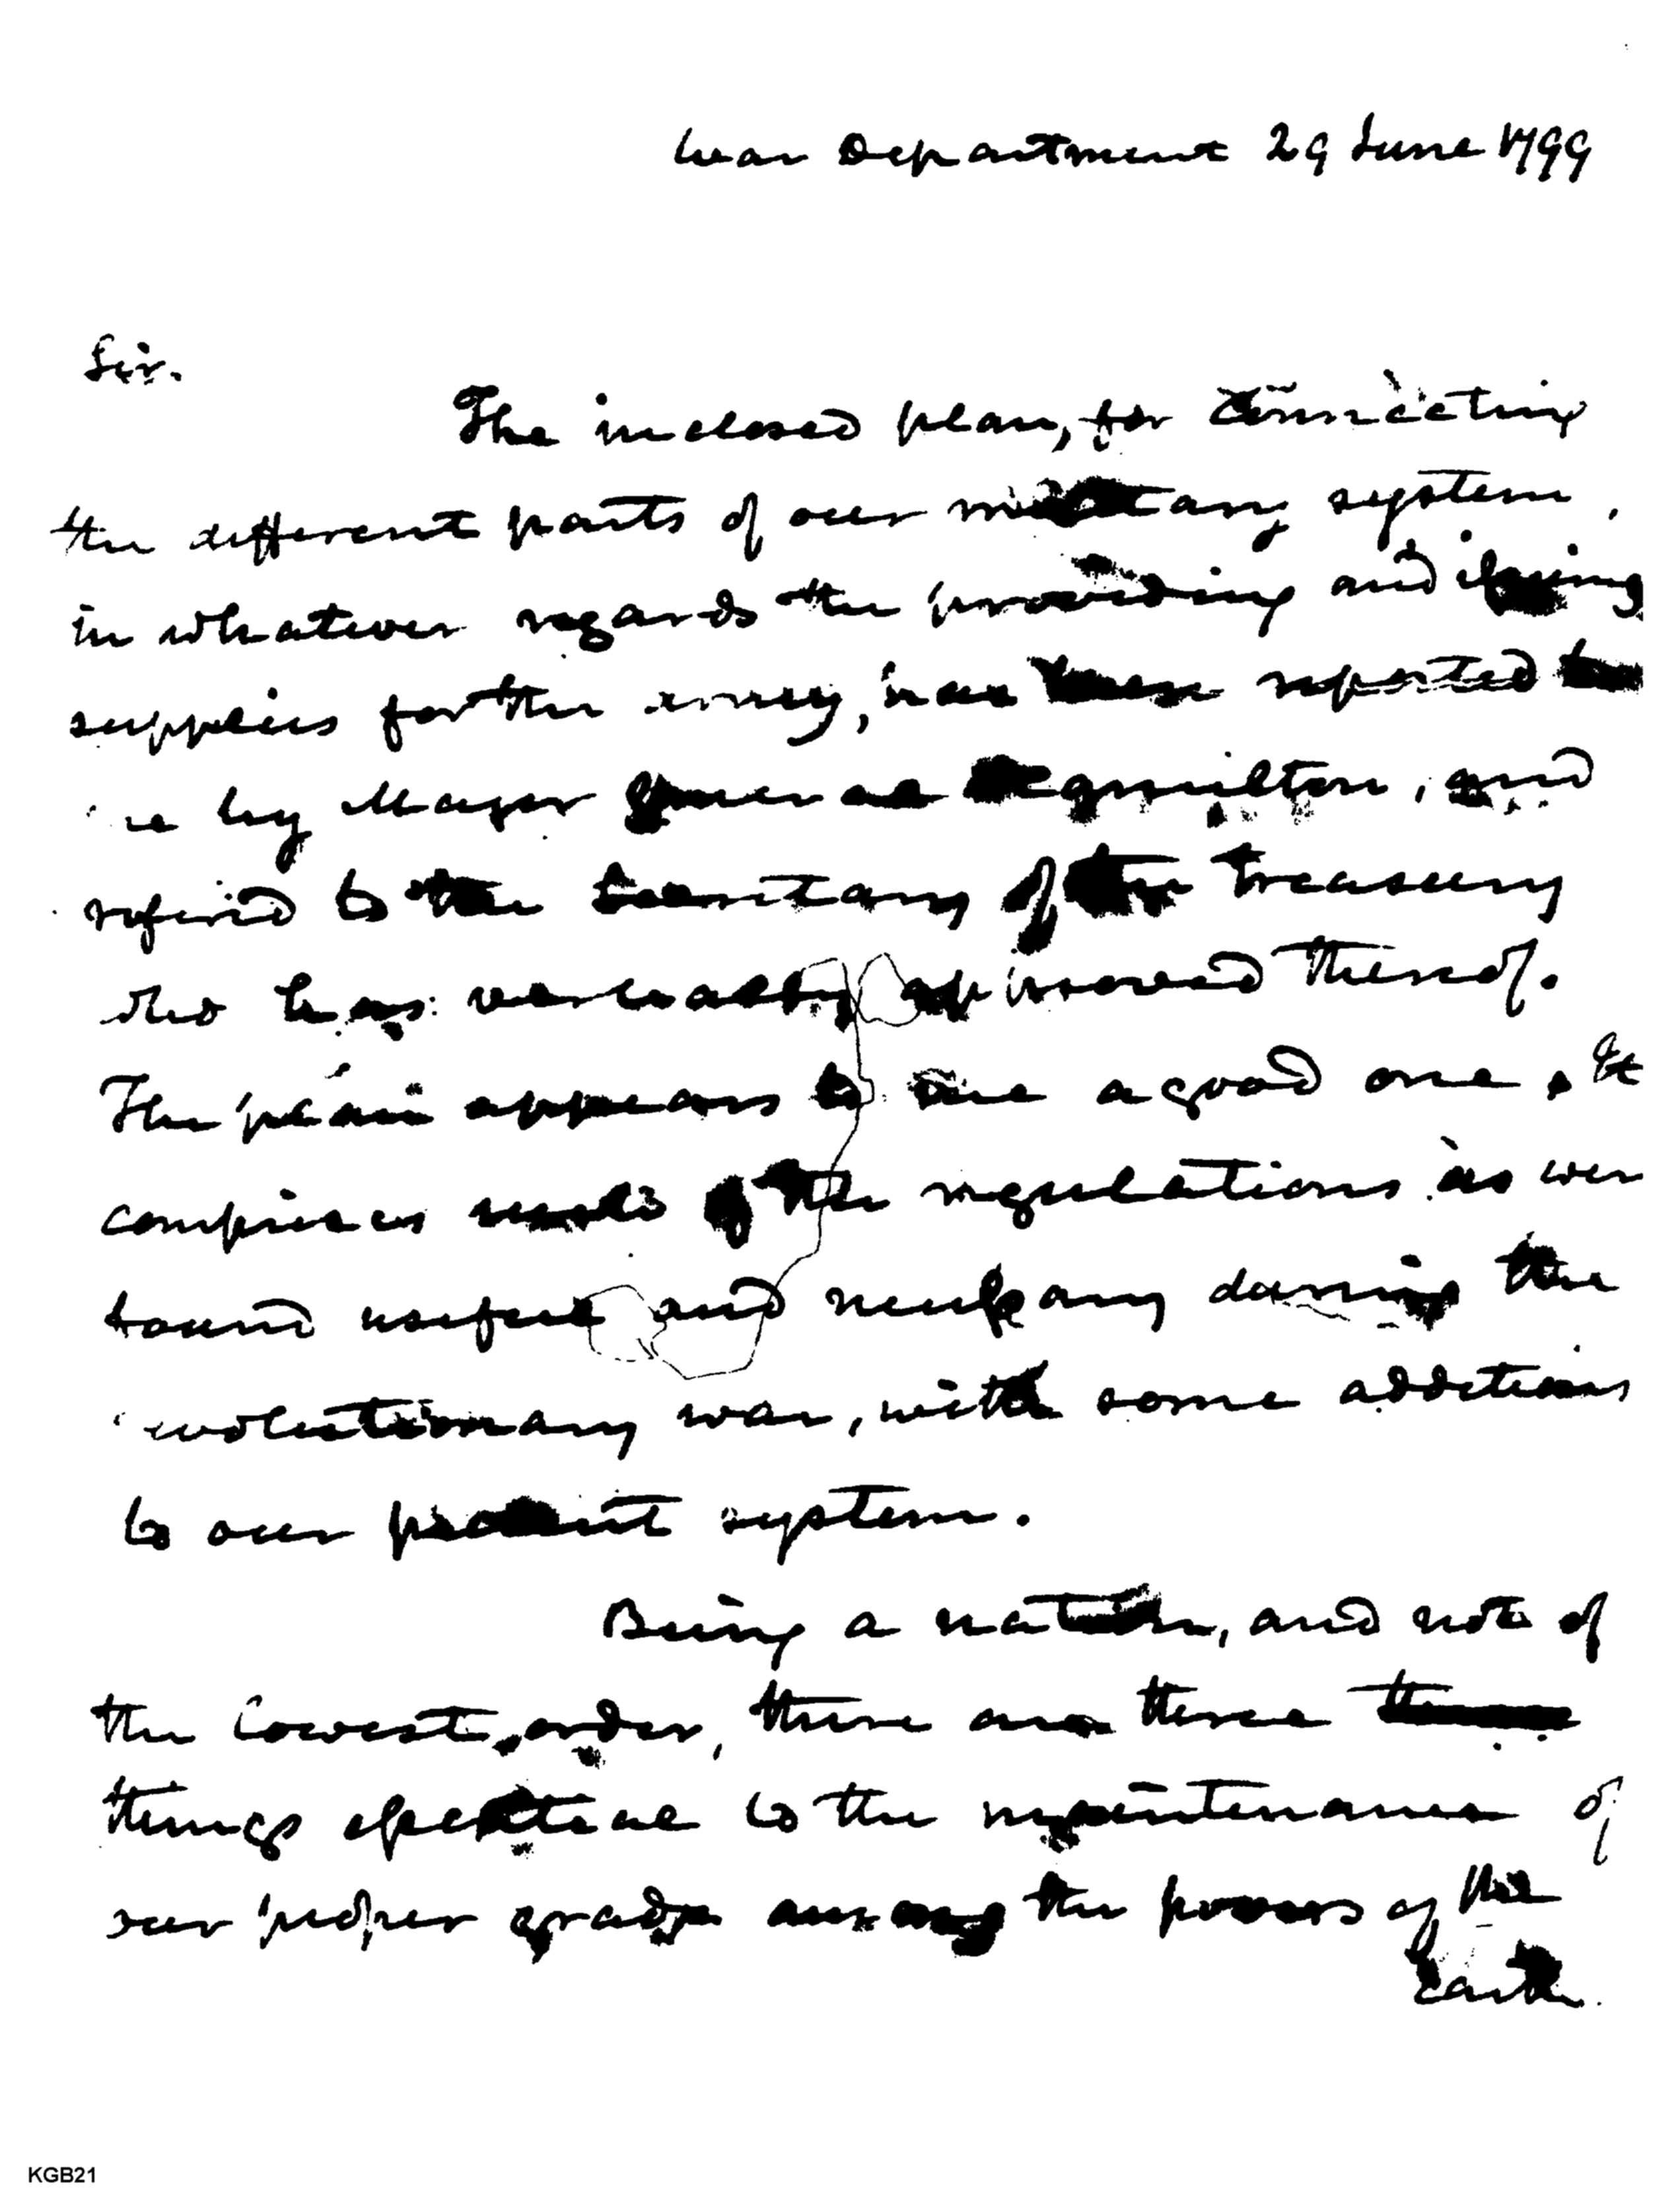 War Department 29 June 1799
Sir.
The inclosed plan, for connecting
the different parts of our military system,
in whatever regards the providing and issuing
supplies for the army, has been reported to
me by Major General Hamilton, and
refered to the Secretary of the Treasury
who has verbally approved thereof.
The plan appears to me a good one. It
comprises most of the regulations as were
found useful and necessary during the
revolutionary war, with some additions
to our present system.
Being a nation, and not of
the lowest order, there are three
things essential to the maintenance of
our proper grade among the powers of the
Earth.
KGB21